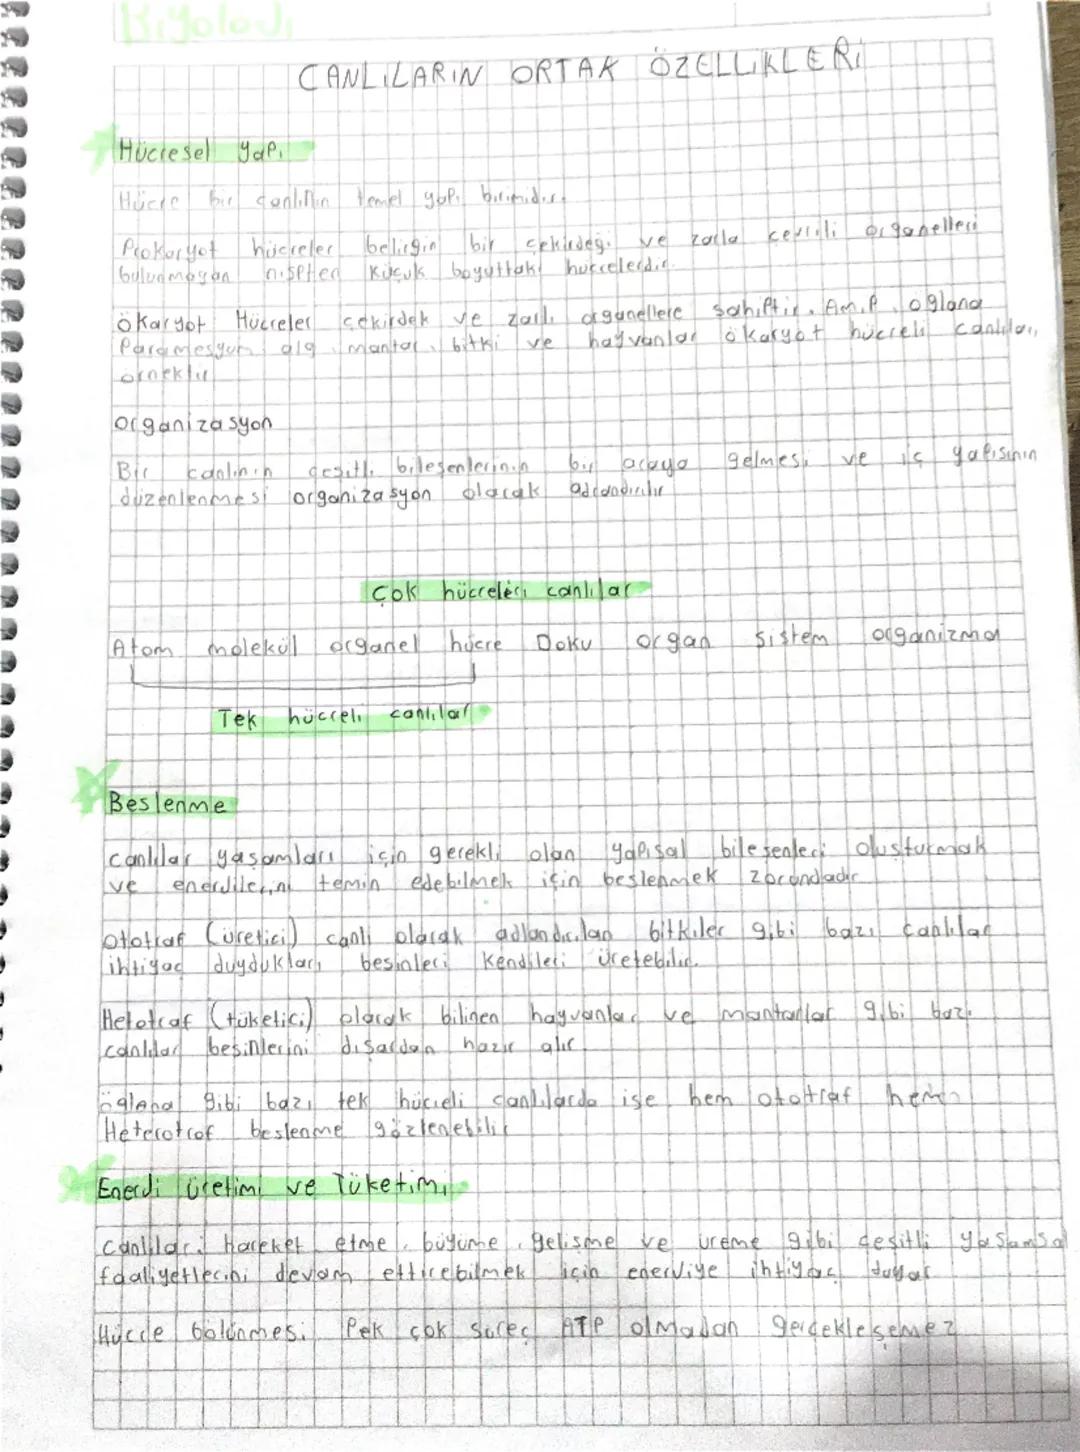 Biyoloji
CANLILARIN ORTAK ÖZELLİKLERİ
Hücresel yapı
Hücre bir canlının temel yapı birimidir.
Prokaryot hücreler belirgin bir çekirdeği ve zarla çevrili organelleri
bulunmayan nispeten küçük boyuttaki hücrelerdir.
Ökaryot Hücreler çekirdek ve zarlı organellere sahiptir. Amip, öglana
Paramesyum, alg, mantar, bitki ve hayvanlar ökaryot hücreli canlıları
örnektir
organizasyon
Bir canlının çeşitli bileşenlerinin bir araya gelmesi ve iç yapısının
düzenlenmesi organizasyon olarak adlandırılır
Çok hücreleri canlılar
Atom molekül organel hücre Doku organ sistem organizma
Tek hücreli canlılar
Beslenme
canlılar yaşamları için gerekli olan yapısal bileşenleri oluşturmak
ve enerjilerini temin edebilmek için beslenmek zorundadır
ototraf (üretici) canlı olarak adlandırılan bitkiler gibi bazı canlılar
ihtiyaç duydukları besinleri kendileri üretebilir.
Hetotraf (tüketici) olarak bilinen hayvanlar ve mantarlar gibi bazı
canlılar besinlerini dışardan hazır alır.
öglana gibi bazı tek hücreli canlılarda ise hem ototraf hem
Heterotrof beslenme gözlenebilir
Enerji üretimi ve Tüketimi
canlılar: hareket etme, büyüme, gelişme ve üreme gibi çeşitli yaşamsal
faaliyetlerini devam ettirebilmek için enerjiye ihtiyaç duyar
Hücre bölünmesi Pek çok süreç ATP olmadan gerçekleşemez